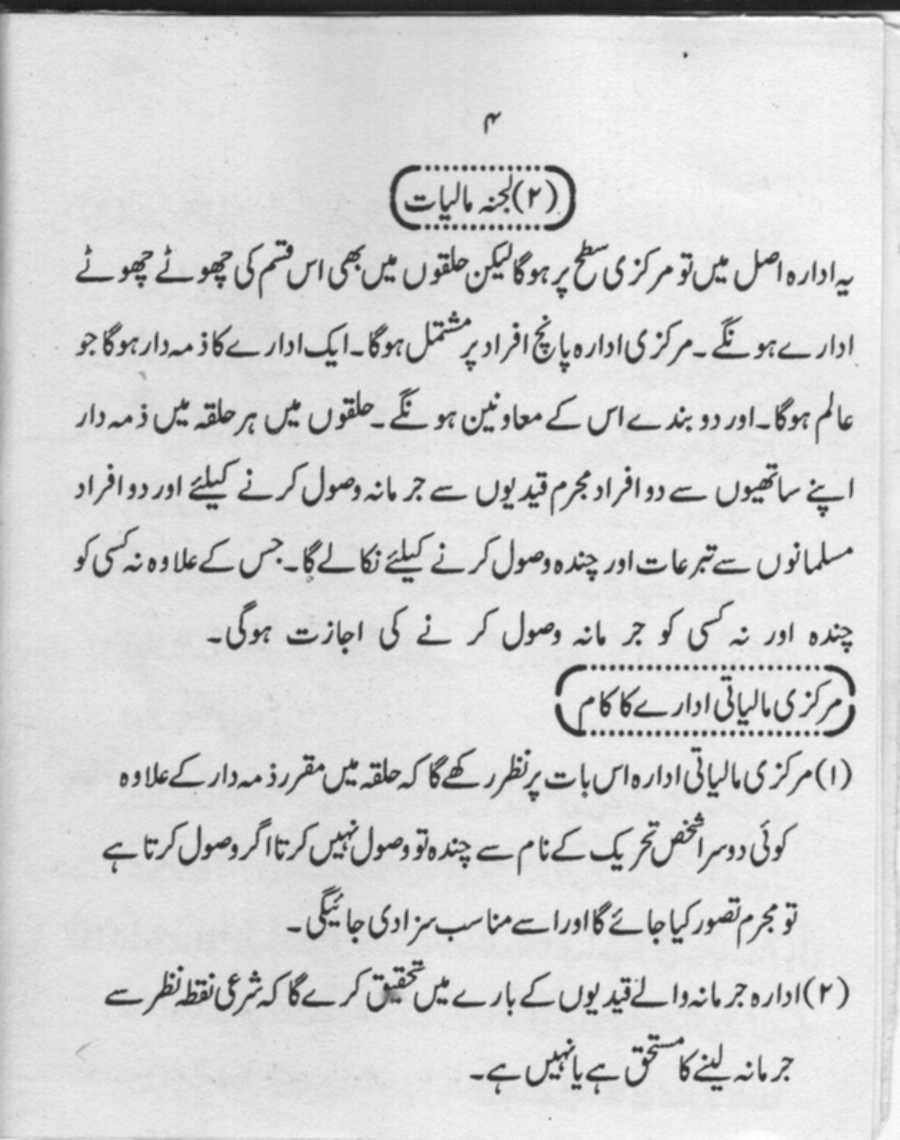 ۴
(۲) لجنہ مالیات
یہ ادارہ اصل میں تو مرکزی سطح پر ہوگا لیکن حلقوں میں بھی اس قسم کی چھوٹے چھوٹے
ادارے ہونگے۔ مرکزی ادارہ پانچ افراد پر مشتمل ہوگا۔ ایک ادارے کا ذمہ دار ہوگا جو
عالم ہوگا۔ اور دو بندے اس کے معاونین ہونگے۔ حلقوں میں ہر حلقہ میں ذمہ دار
اپنے ساتھیوں سے دو افراد مجرم قیدیوں سے جرمانہ وصول کرنے کیلئے اور دو افراد
مسلمانوں سے تبرعات اور چندہ وصول کرنے کیلئے نکالے گا۔ جس کے علاوہ نہ کسی کو
چندہ اور نہ کسی کو جرمانہ وصول کرنے کی اجازت ہوگی۔
مرکزی مالیاتی ادارے کا کام
(۱) مرکزی مالیاتی ادارہ اس بات پر نظر رکھے گا کہ حلقہ میں مقرر ذمہ دار کے علاوہ
کوئی دوسرا شخص تحریک کے نام سے چندہ تو وصول نہیں کرتا اگر وصول کرتا ہے
تو مجرم تصور کیا جائے گا اور اسے مناسب سزا دی جائیگی۔
(۲) ادارہ جرمانہ والے قیدیوں کے بارے میں تحقیق کرے گا کہ شرعی نقطہ نظر سے
جرمانہ لینے کا مستحق ہے یا نہیں ہے۔